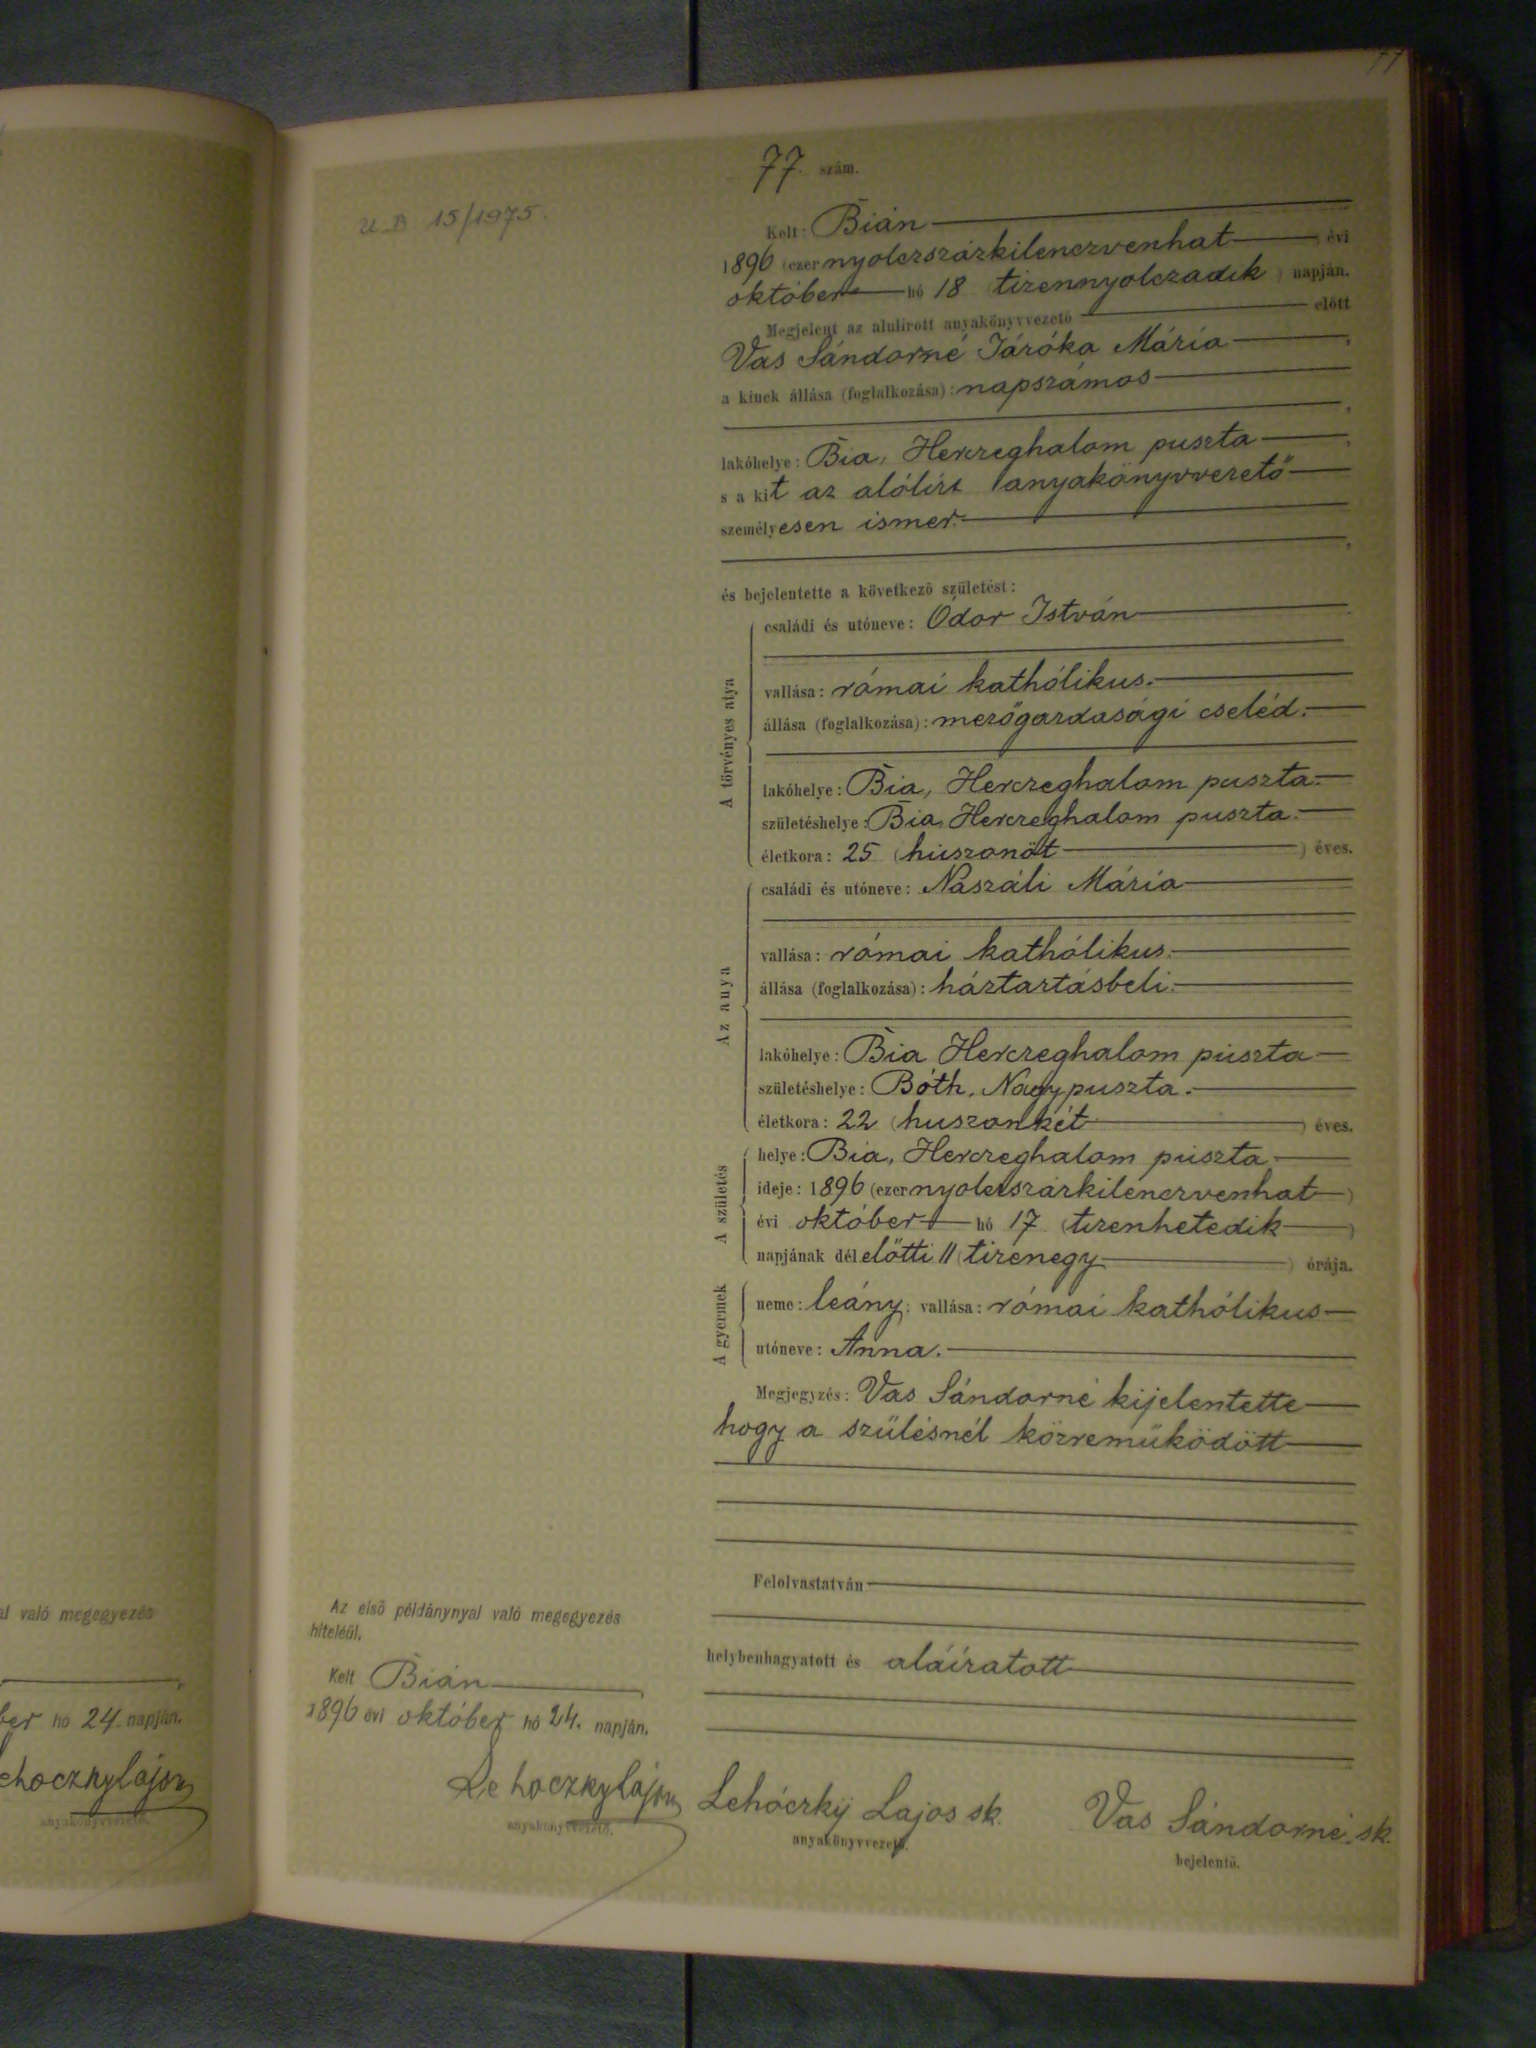 77
77. szám.
U. B 15/1975.
Kelt: Bián
1896 (ezernyolczszázkilenczvenhat) évi
október hó 18 (tizennyolczadik) napján.
Megjelent az alulírott anyakönyvvezető előtt
Vas Sándorné Járóka Mária,
a kinek állása (foglalkozása): napszámos
,
lakóhelye: Bia, Herczeghalom puszta,
s a kit az alólírt anyakönyvvezető
személyesen ismer.
,
és bejelentette a következő születést:
A törvényes atya
családi és utóneve: Ódor István
vallása: római kathólikus.
állása (foglalkozása): mezőgazdasági cseléd.
lakóhelye: Bia, Herczeghalom puszta.
születéshelye: Bia, Herczeghalom puszta.
életkora: 25 (huszonöt) éves.
Az anya
családi és utóneve: Naszáli Mária
vallása: római kathólikus.
állása (foglalkozása): háztartásbeli.
lakóhelye: Bia Herczeghalom puszta
születéshelye: Bóth, Nagypuszta.
életkora: 22 (huszonkét) éves.
A születés
helye: Bia, Herczeghalom puszta.
ideje: 1896 (ezernyolczszázkilenczvenhat)
évi október hó 17 (tizenhetedik)
napjának délelőtti 11 (tizenegy) órája.
A gyermek
neme: leány; vallása: római kathólikus
utóneve: Anna.
Megjegyzés: Vas Sándorné kijelentette
hogy a szülésnél közreműködött
Felolvastatván
helybenhagyatott és aláíratott
Az első példánynyal való megegyezés
hiteléül.
Kelt Bián,
1896 évi október hó 24. napján.
Lehoczky Lajos
anyakönyvvezető.
Lehóczky Lajos sk.
anyakönyvvezető.
Vas Sándorné sk.
bejelentő.
al való megegyezés
ber hó 24. napján.
ehoczky Lajos
anyakönyvvezető.